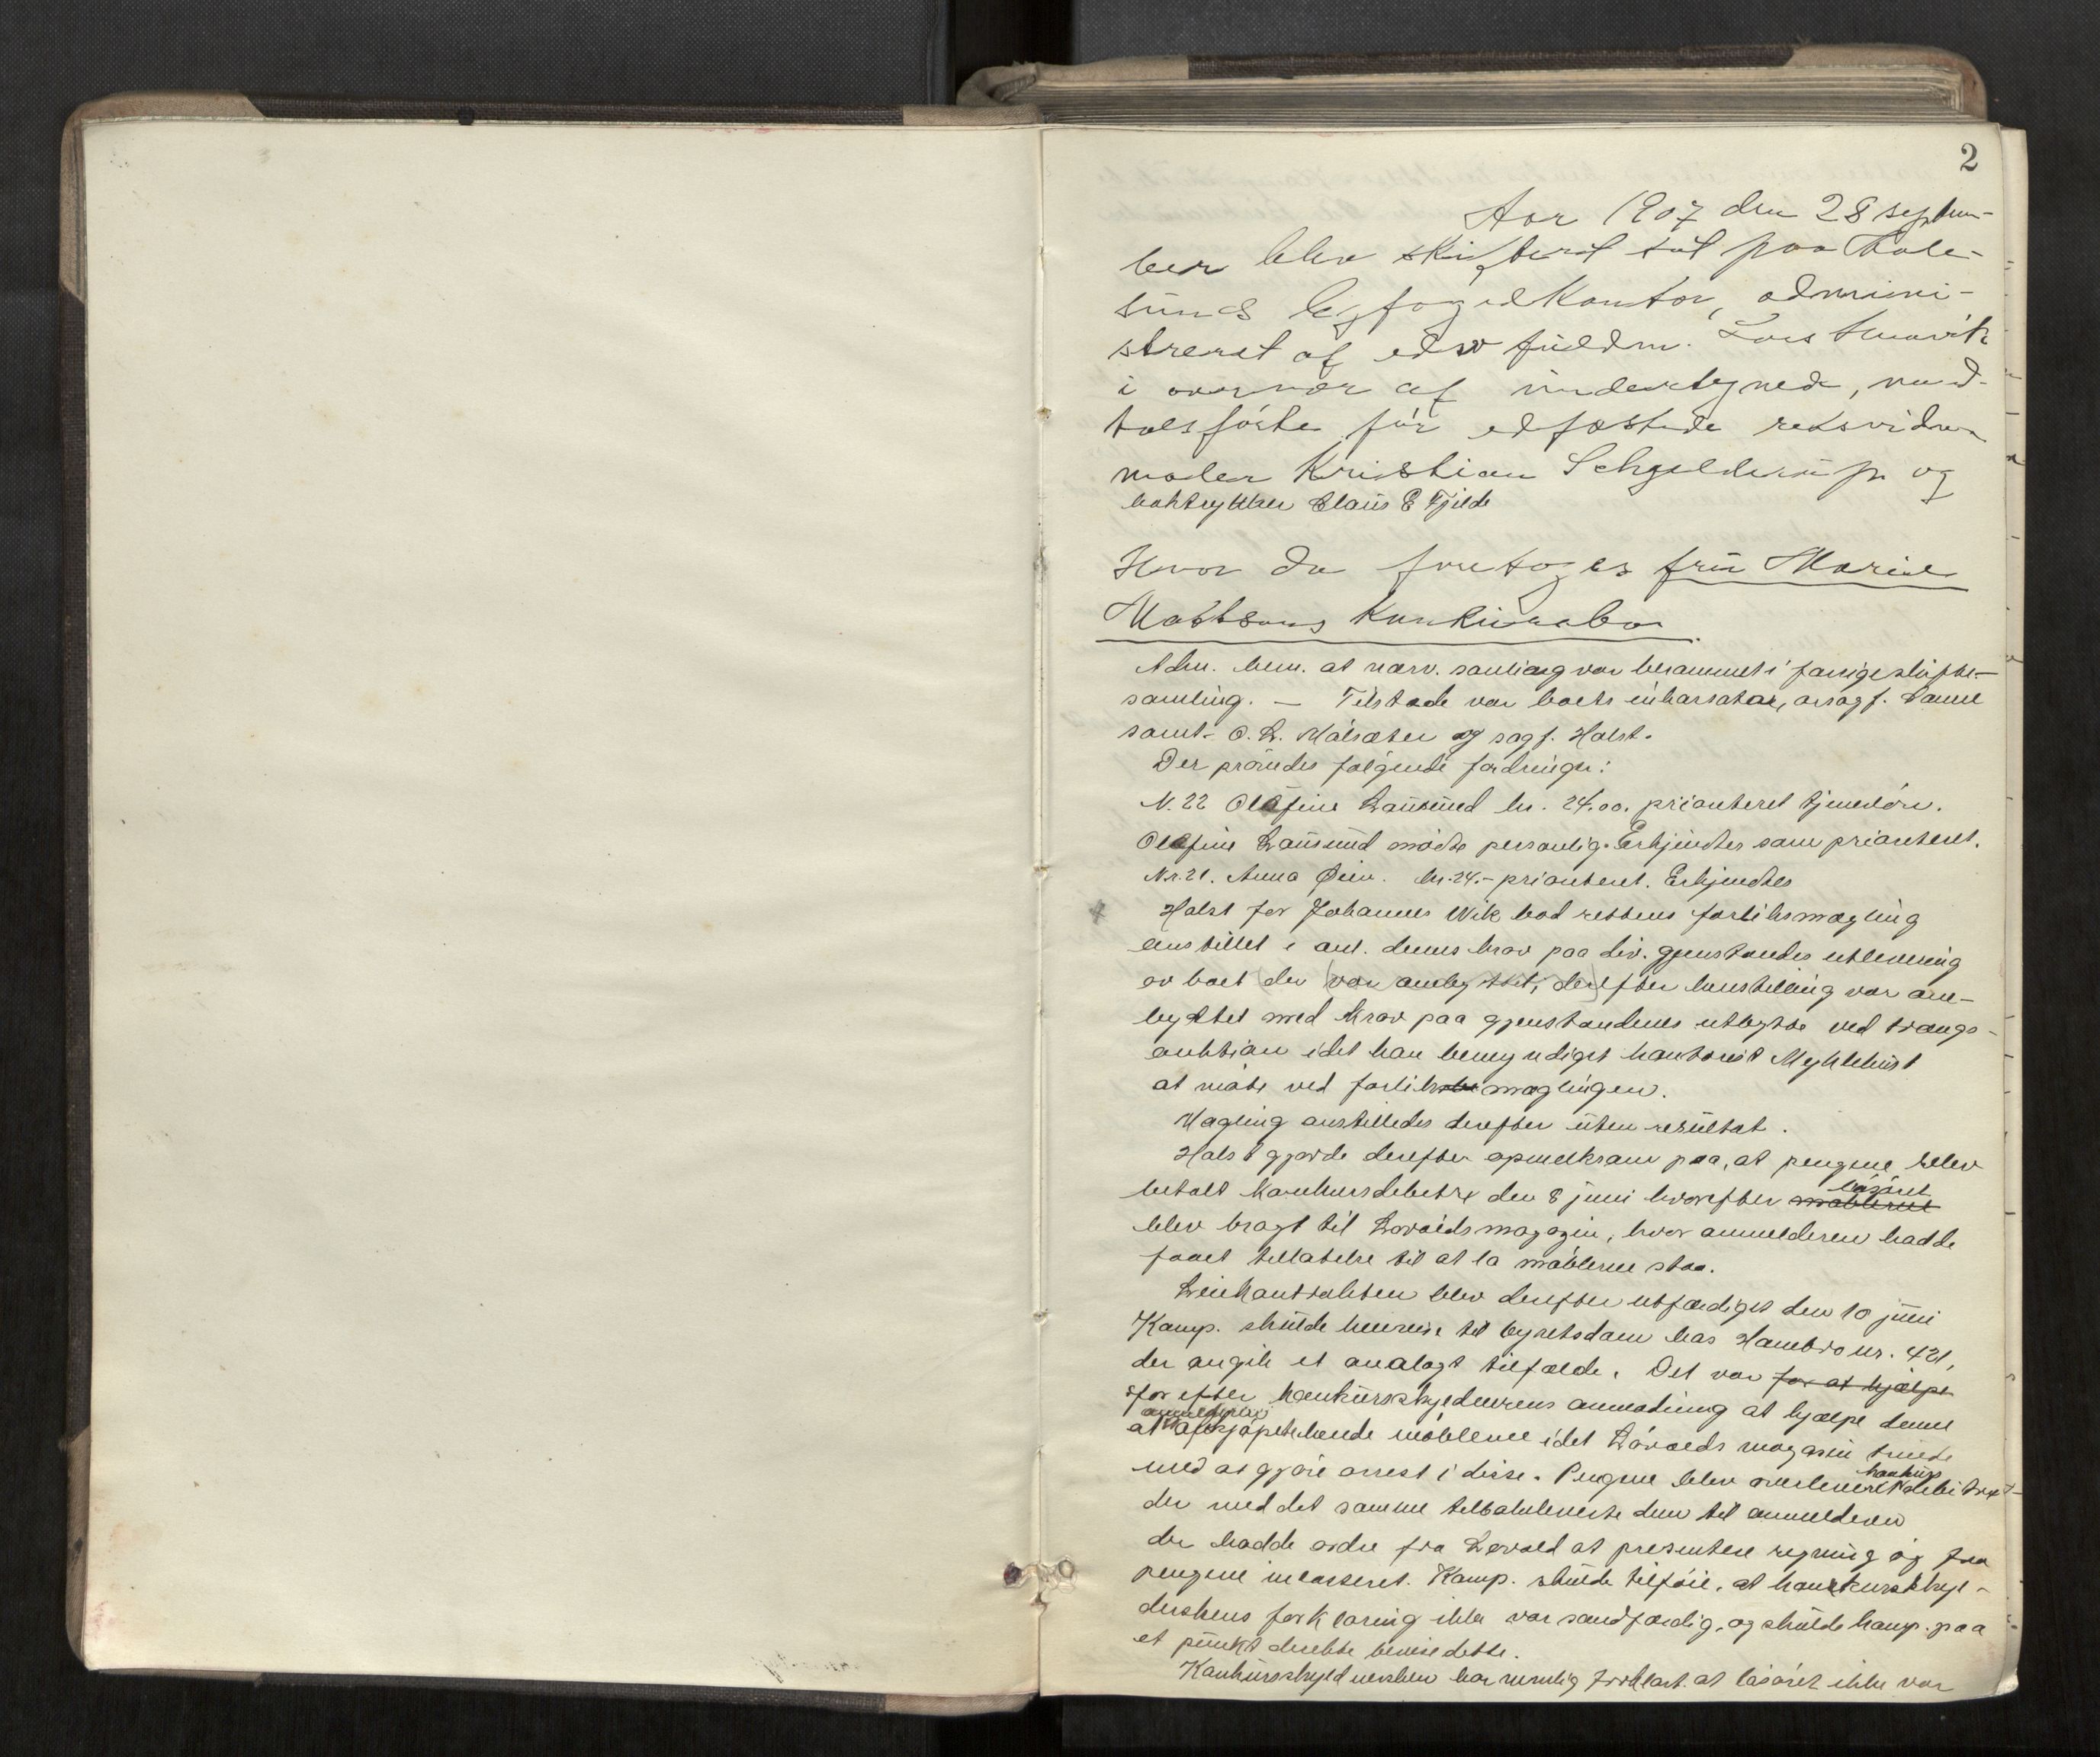 2
Aar 1907 den 28 septem-
ber blev skifteret sat paa Aale-
sunds byfogedkontor, admini-
streret af edsv fuldm. Lars
i overvær af undertegnede, med-
edfæstede retsvidner
maler Kristian Schjelderup og
boktrykker Claus E Fjelde
Hvor da foretoges fru Marie
Mattsons konkursbo.
Adm. bem. at nærv. samling var berammet i forrige skifte-
samling. — Tilstede var boets inkassator, orsagf. Daniel
samt O. L. Målsæter og sagf. Holst.
Der prøvedes følgende fordringer:
N. 22 Olefine Lausund kr. 24.00. prioriteret tjenerløn.
Olefine Lausund mødte personlig. Erkjendtes som prioriteret.
Nr. 21. Anna Øien. kr. 24.- prioriteret. Erkjendtes
Holst for Johannes Wik bad rettens forliksmægling
anstillet i anl. dennes krav paa div. gjenstandes utlevering
av boet den var derefter henstilling var om-
byttet med krav paa gjenstandenes utbytte ved tvangs-
auktion idet han bemyndiget kontorist Myklebust
at møte ved forliks mæglingen.
Mægling anstilledes derefter uten resultat.
Holst gjorde derefter opmerksom paa, at pengene blev
betalt konkursdebitrx den 8 juni hvorefter møblerne
løsøret
blev bragt til Lovolds magazin, hvor anmelderen hadde
faaet tillatelse til at la møblerne staa.
Leiekontrakten blev derefter utfærdiget den 10 juni
Komp. skulde henvise til byretsdom hos Hambro nr. 421,
der angik et analogt tilfælde. Det var for at hjælpe
efter konkursskyldnerens anmodning at hjælpe denne
anmelderen
at kjøpte hende møblerne idet Lovolds magasin truede
med at gjøre arrest i disse. Pengene blev overleveret debitrx-
konkurs
der med det samme tilbakeleverte dem til anmelderen
der hadde ordre fra Lovold at presentere regning og faa
pengene incasseret. Komp. skulde tilføie, at konkursskyl-
derskens forklaring ikke var sandfærdig, og skulde komp. paa
et punkt direkte bevise dette.
Konkursskyldnersken har nemlig forklart at løsøret ikke var